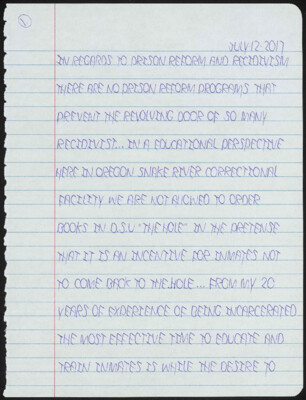 1
JULY 12 2017
IN REGARDS TO PRISON REFORM AND RECIDIVISM
THERE ARE NO PRISON REFORM PROGRAMS THAT
PREVENT THE REVOLVING DOOR OF SO MANY
RECIDIVIST... IN A EDUCATIONAL PERSPECTIVE
HERE IN OREGON SNAKE RIVER CORRECTIONAL
FACILITY WE ARE NOT ALLOWED TO ORDER
BOOKS IN D.S.U "THE HOLE" IN THE PRETENSE
THAT IT IS AN INCENTIVE FOR INMATES NOT
TO COME BACK TO THE HOLE... FROM MY 20
YEARS OF EXPERIENCE OF BEING INCARCERATED
THE MOST EFFECTIVE TIME TO EDUCATE AND
TRAIN INMATES IS WHILE THE DESIRE TO